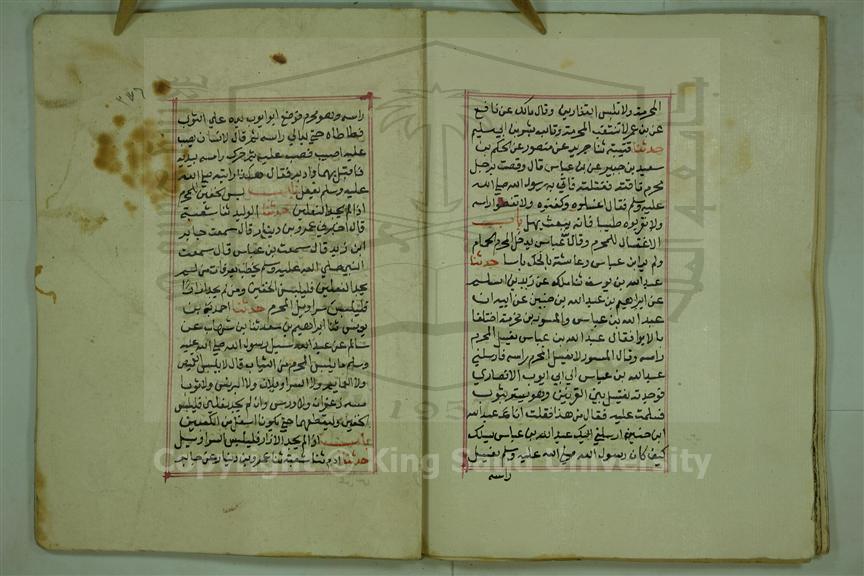 المحرمة ولا تلبس القفازين وقال مالك عن نافع
عن بن عمر لا تنتقب المحرمة وتابعه ليث بن ابي سليم
حدثنا قتيبة ثنا جرير عن منصور عن الحكم بن
سعيد بن جبير عن بن عباس قال وقصت برجل
محرم ناقته فقتلته فاتي به رسول الله صلى الله
عليه وسلم فقال اغسلوه وكفنوه ولا تغطوا راسه
ولا تقربوه طيبا فانه يبعث يهل باب
الاغتسال للمحرم وقال بن عباس يدخل المحرم الحمام
ولم ير ابن عباس وعائشة بالحك باسا حدثنا
عبد الله بن يوسف ثنا ملك عن زيد بن اسلم
عن ابراهيم بن عبد الله بن حنين عن ابيه ان
عبد الله بن عباس والمسور بن مخرمة اختلفا
بالابوا فقال عبد الله بن عباس يغسل المحرم
راسه وقال المسور لا يغسل المحرم راسه فارسلني
عبد الله بن عباس الى ابي ايوب الانصاري
فوجدته يغتسل بين القرنين وهو يستر بثوب
فسلمت عليه فقال من هذا فقلت انا عبد الله
ابن حنين ارسلني اليك عبد الله بن عباس يسئلك
كيف كان رسول الله صلى الله عليه وسلم يغسل
راسه
راسه وهو محرم فوضع ابو ايوب يده على الثوب
فطاطاه حتى بدا لي راسه ثم قال لانسان يصب
عليه اصبب فصب عليه ثم حرك راسه بيديه
فاقبل بهما وادبر فقال هكذا رايته صلى الله
عليه وسلم يفعل باب لبس الخفين للمحرم
اذا لم يجد النعلين حدثنا الوليد ثنا شعبة
قال اخبرني عمرو بن دينار قال سمعت جابر
ابن زيد قال سمعت بن عباس قال سمعت
النبي صلى الله عليه وسلم يخطب بعرفات من لم
يجد النعلين فليلبس الخفين ومن لم يجد ازارا
فليلبس سراويل المحرم حدثنا احمد بن
يونس ثنا ابراهيم بن سعد ثنا بن شهاب عن
سالم عن عبد الله سئل رسول الله صلى الله عليه
وسلم ما يلبس المحرم من الثياب قال لا يلبس القميص
ولا العمايم ولا السراويلات ولا البرنس ولا ثوبا
مسه زعفران ولا ورس وان لم يجد نعلين فليلبس
الخفين وليقطعهما حتى يكونا اسفل من الكعبين
باب اذا لم يجد الازار فليلبس السراويل
حدثنا ادم ثنا شعبة ثنا عمرو بن دينار عن جابر
Copyright © King Saud University